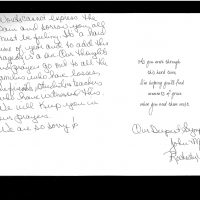 Words cannot express the
pain and sorrow you all
must be feeling. It's a hard
time of year and to add this
tragedy is a sin. Our thoughts
and prayers go out to all the
families who have losses,
employees, students, teachers
will have witnessed this.
We will keep you in
our prayers.
We are so sorry!
As you move through
this hard time,
I'm hoping you'll find
moments of peace
when you need them most.
Our Deepest Symp
John M